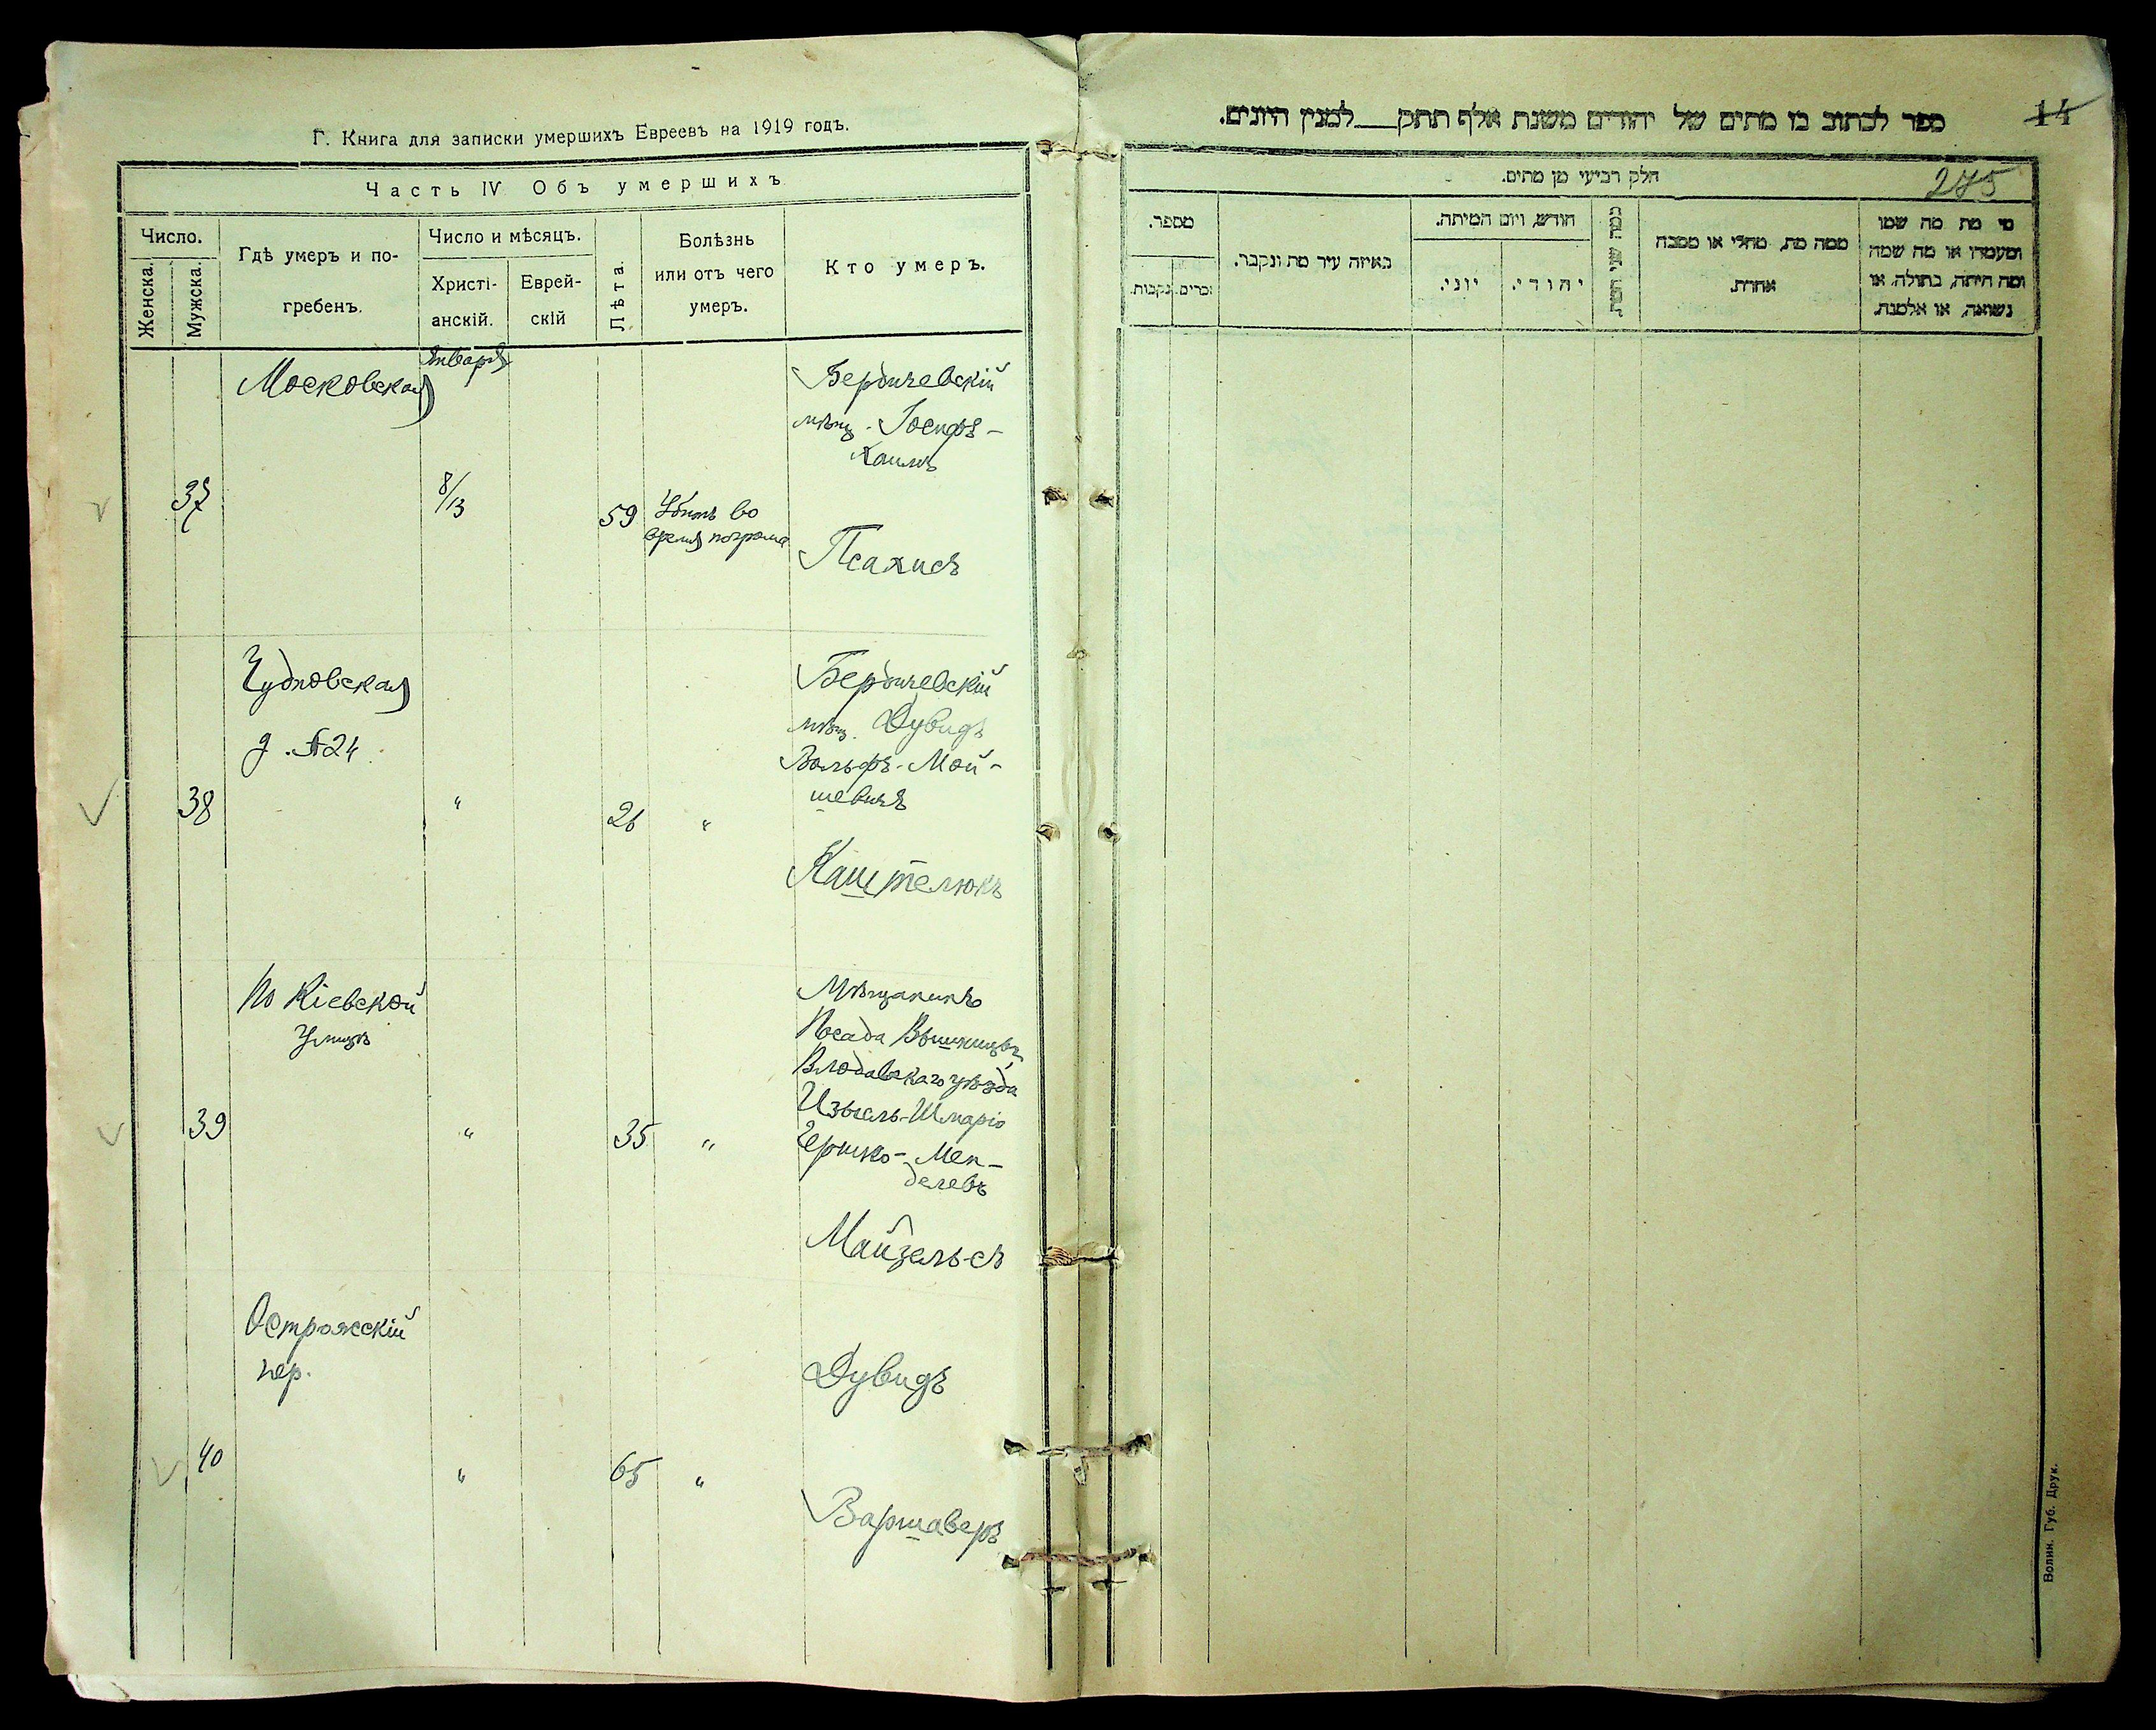 Г. Книга для записки умершихъ Евреевъ на 1919 годъ.
Часть IV Объ умершихъ
Число.
Женска.
Мужска.
Гдѣ умеръ и по-
гребенъ.
Число и мѣсяцъ.
Христі-
анскій.
Еврей-
скій
Лѣта.
Болѣзнь
или отъ чего
умеръ.
Кто умеръ.
Московская
Января
37
8/13
59
Убитъ во
время погрома
Бердичевскій
мѣщ. Іосифъ-
Хаимъ
Псахисъ
Чудновская
д. №24
38
"
26
"
Бердичевскій
мѣщ. Дувидъ
Вольфъ-Мой-
шевичъ
Каштелюкъ
По Кіевской
улицѣ
39
"
35
"
Мѣщанинъ
Посада
Влодавскаго уѣзда
Шмарiо
Гершко-Мен-
делевъ
Майзельсъ
Острожскій
пер.
40
"
65
"
Дувидъ
Варшаверъ
ספר לכתוב בו מתים של יהודים משנת אלף תתק___למנין היונים.
14
275
חלק רביעי מן מתים.
מספר.
זכרים.
נקבות.
באיזה עיר מת ונקבר.
חודש, ויום המיתה.
יוני.
יהודי.
כמה שני המת.
ממה מת, מחלי או מסבה
אחרת.
מי מת מה שמו
ומעמדו או מה שמה
ומה היתה, בתולה, או
נשואה, או אלמנה.
Волин. Губ. Друк.